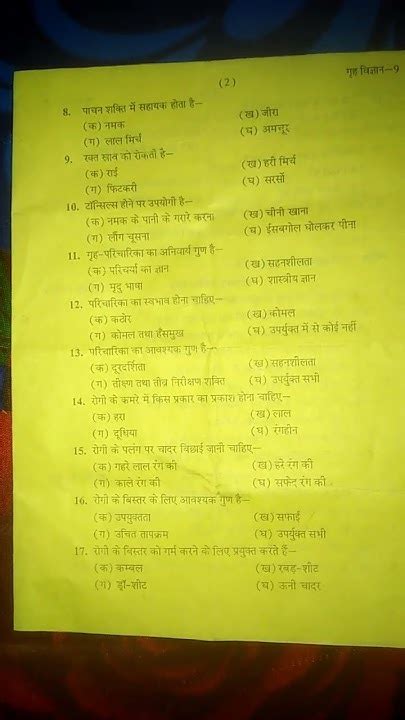 (2)
गृह विज्ञान—9
8. पाचन शक्ति में सहायक होता है—
(क) नमक (ख) जीरा
(ग) लाल मिर्च (घ) अमचूर
9. रक्त स्राव को रोकती है—
(क) राई (ख) हरी मिर्च
(ग) फिटकरी (घ) सरसों
10. टॉन्सिल्स होने पर उपयोगी है—
(क) नमक के पानी के गरारे करना (ख) चीनी खाना
(ग) लौंग चूसना (घ) ईसबगोल घोलकर पीना
11. गृह-परिचारिका का अनिवार्य गुण है—
(क) परिचर्या का ज्ञान (ख) सहनशीलता
(ग) मृदु भाषा (घ) शास्त्रीय ज्ञान
12. परिचारिका का स्वभाव होना चाहिए—
(क) कठोर (ख) कोमल
(ग) कोमल तथा हँसमुख (घ) उपर्युक्त में से कोई नहीं
13. परिचारिका का आवश्यक गुण है—
(क) दूरदर्शिता (ख) सहनशीलता
(ग) तीक्ष्ण तथा तीव्र निरीक्षण शक्ति (घ) उपर्युक्त सभी
14. रोगी के कमरे में किस प्रकार का प्रकाश होना चाहिए—
(क) हरा (ख) लाल
(ग) दूधिया (घ) रंगहीन
15. रोगी के पलंग पर चादर बिछाई जानी चाहिए—
(क) गहरे लाल रंग की (ख) हरे रंग की
(ग) काले रंग की (घ) सफेद रंग की
16. रोगी के बिस्तर के लिए आवश्यक गुण है—
(क) उपयुक्तता (ख) सफाई
(ग) उचित तापक्रम (घ) उपर्युक्त सभी
17. रोगी के बिस्तर को गर्म करने के लिए प्रयुक्त करते हैं—
(क) कम्बल (ख) रबड़-शीट
(ग) ड्रॉ-शीट (घ) ऊनी चादर